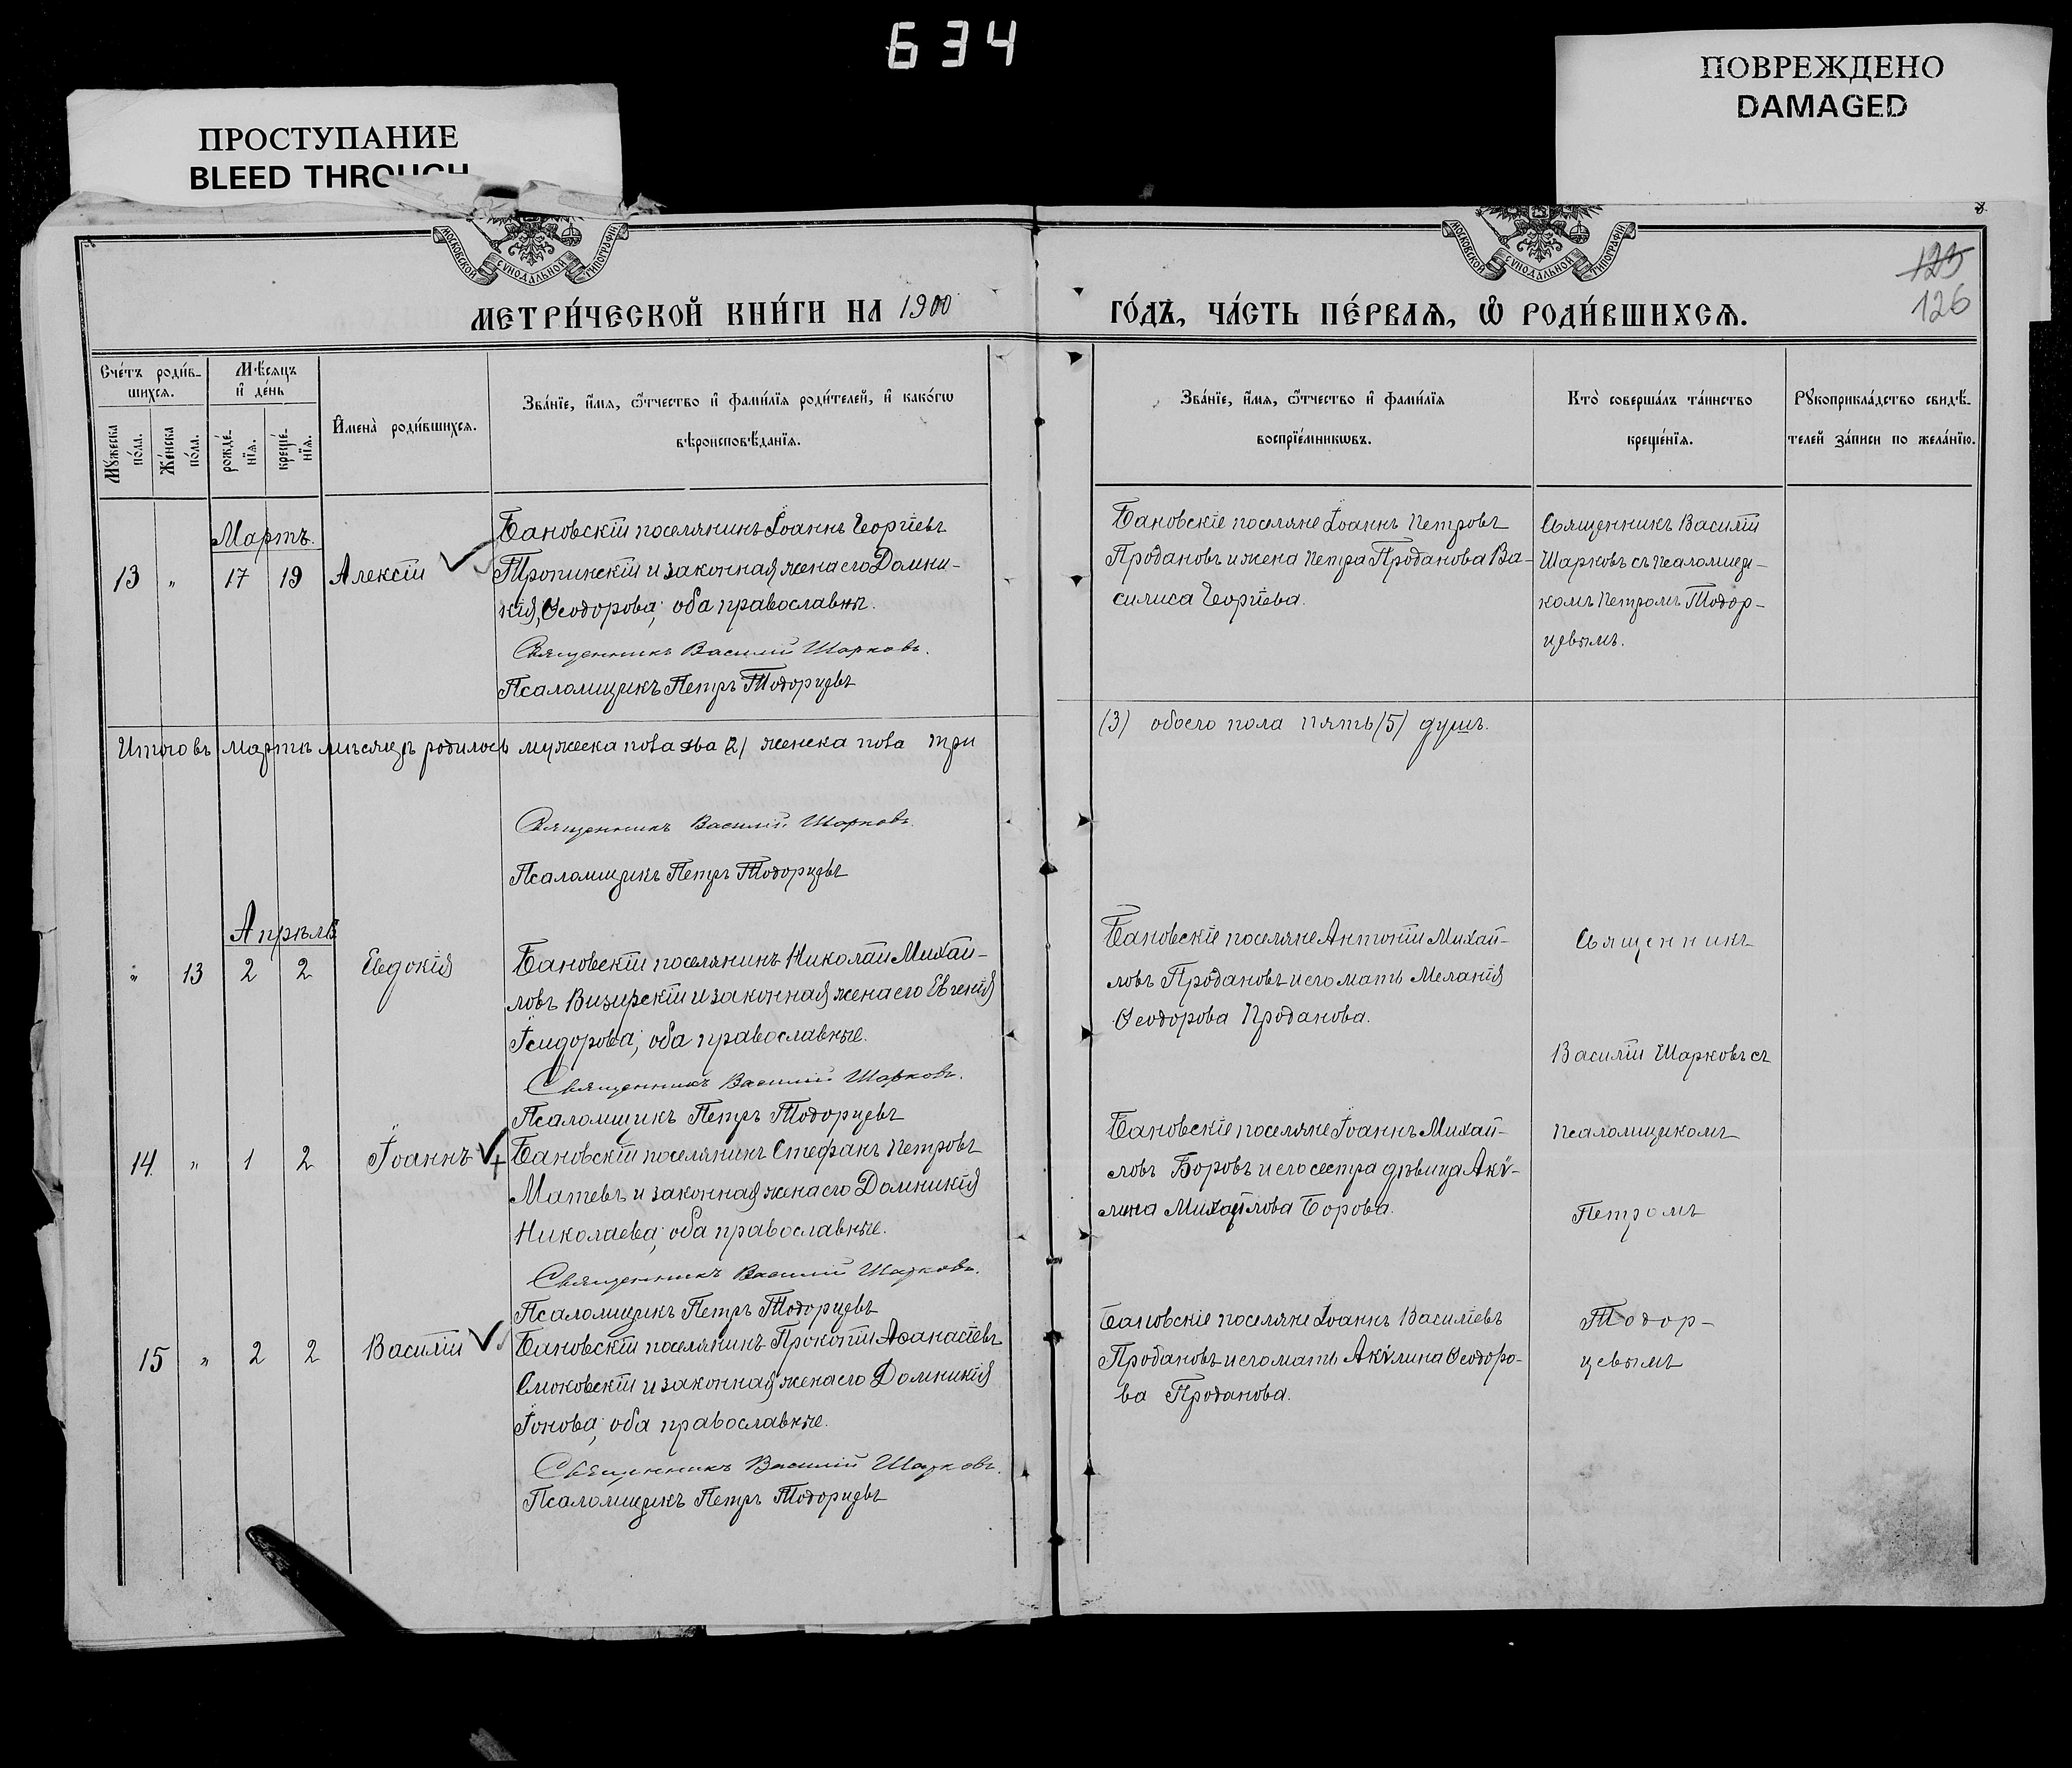 634
ПРОСТУПАНИЕ
BLEED THROUGH
ПОВРЕЖДЕНО
DAMAGED
МОСКОВСКОЙ СѴНОДАЛЬНОЙ ТИПОГРАФІИ
МОСКОВСКОЙ СѴНОДАЛЬНОЙ ТИПОГРАФІИ
125
126
МЕТРИ́ЧЕСКОЙ КНИ́ГИ НА 1900
ГО́ДЪ, ЧА́СТЬ ПЕ́РВАѦ, Ѡ҆ РОДИ́ВШИХСѦ.
Сче́тъ роди́в-
шихся.
Мѣ́сяцъ
и҆ де́нь
Мꙋ́жеска
по́ла.
Же́нска
по́ла.
рожде́-
нїя.
креще́-
нїя.
И҆мена̀ роди́вшихся.
Зва́нїе, и҆́мя, ѻ҆́тчество и҆ фами́лїя роди́телей, и҆ како́гѡ
вѣроисповѣ́данїя.
Зва́нїе, и҆́мя, ѻ҆́тчество и҆ фами́лїя
воспрїе́мникѡвъ.
Кто̀ соверша́лъ та́инство
креще́нїя.
Рꙋкоприкла́дство свидѣ́-
телей за́писи по жела́нїю.
Мартъ.
13 " 17 19 Алексій
Бановскій поселянинъ Іоаннъ Георгіевъ
Тропинскій и законная жена его Домни-
кія Ѳеодорова; оба православны.
Священникъ Василій Шарковъ.
Псаломщикъ Петръ Тодорцевъ
Бановскіе поселяне Іоаннъ Петровъ
Продановъ и жена Петра Проданова Ва-
силиса Георгіева.
Священникъ Василій
Шарковъ съ псаломщи-
комъ Петромъ Тодор-
цевымъ.
Итого въ мартѣ мѣсяцѣ родилось мужеска пола два (2) женска пола три
(3) обоего пола пять (5) душъ.
Священникъ Василій Шарковъ.
Псаломщикъ Петръ Тодорцевъ
Апрѣль
" 13 2 2 Евдокія
Бановскій поселянинъ Николай Михай-
ловъ Визирскій и законная жена его Евгенія
Ісидорова; оба православные.
Священникъ Василій Шарковъ.
Псаломщикъ Петръ Тодорцевъ
Бановскіе поселяне Антоній Михай-
ловъ Продановъ и его мать Меланія
Ѳеодорова Проданова.
Священникъ
Василій Шарковъ съ
14 " 1 2 Іоаннъ
Бановскій поселянинъ Стефанъ Петровъ
Матевъ и законная жена его Домникія
Николаева; оба православные.
Священникъ Василій Шарковъ.
Псаломщикъ Петръ Тодорцевъ
Бановскіе поселяне Іоаннъ Михай-
ловъ Боровъ и его сестра дѣвица Акѵ-
лина Михайлова Борова.
псаломщикомъ
Петромъ
15 " 2 2 Василій
Бановскій поселянинъ Прокопій Аѳанасіевъ
Смоковскій и законная жена его Домникія
Іонова; оба православные.
Священникъ Василій Шарковъ.
Псаломщикъ Петръ Тодорцевъ
Бановскіе поселяне Іоаннъ Василіевъ
Продановъ и его мать Акѵлина Ѳеодоро-
ва Проданова.
Тодор-
цевымъ